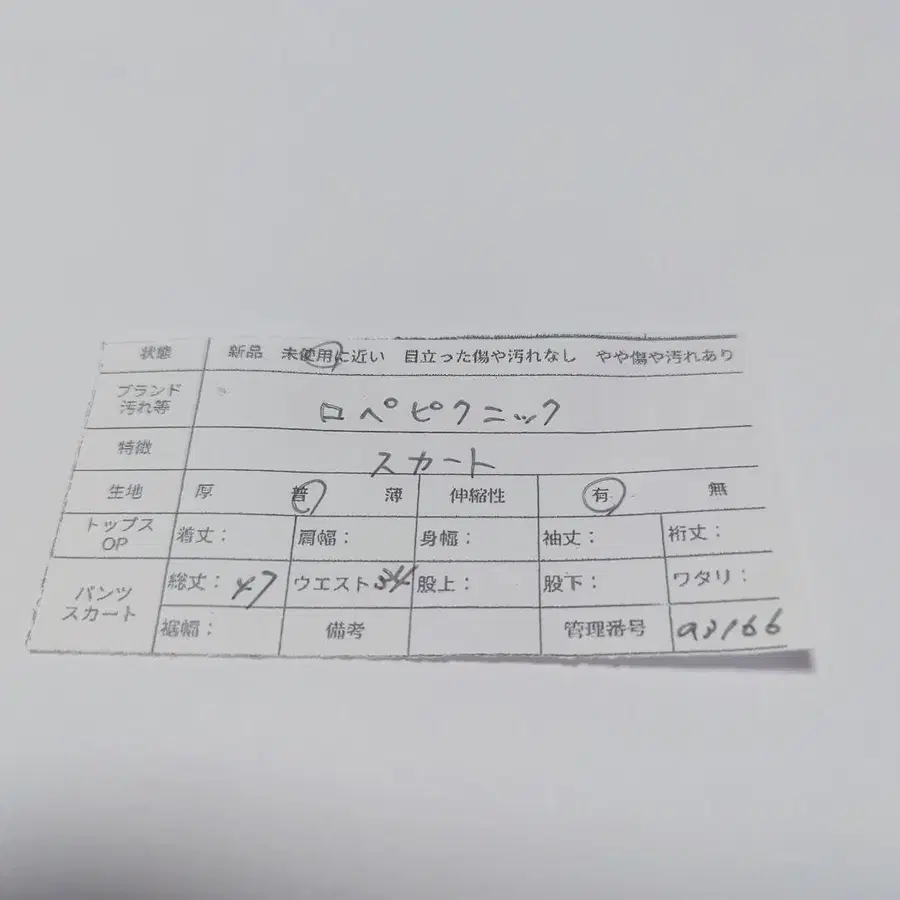 状態 新品 未使用に近い 目立った傷や汚れなし やや傷や汚れあり
ブランド
汚れ等 ロペピクニック
特徴 スカート
生地 厚 普 薄 伸縮性 有 無
トップス
OP 着丈： 肩幅： 身幅： 袖丈： 裄丈：
パンツ
スカート 総丈：47 ウエスト34 股上： 股下： ワタリ：
裾幅： 備考 管理番号 a3166